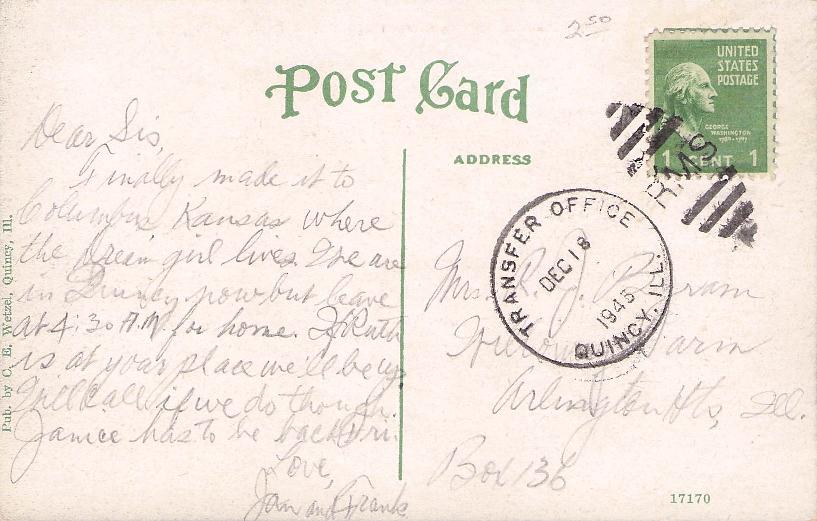 2 50
UNITED
STATES
POSTAGE
GEORGE
WASHINGTON
1789-1797
1 CENT 1
RMS
Post Card
ADDRESS
TRANSFER OFFICE
DEC 18
1945
QUINCY, ILL.
Dear Sis,
Finally made it to
Columbus Kansas where
the dream girl lives. We are
in Quincy now, but leave
at 4:30 A.M. for home. If Ruth
is at your place we'll be up.
I'll call if we do though.
Janice has to be back Fri.
Love,
Jan and Frank
Mrs. R. J.
Farm
Arlington Hts, Ill.
Box 136
Pub. by C. E. Wetzel, Quincy, Ill.
17170